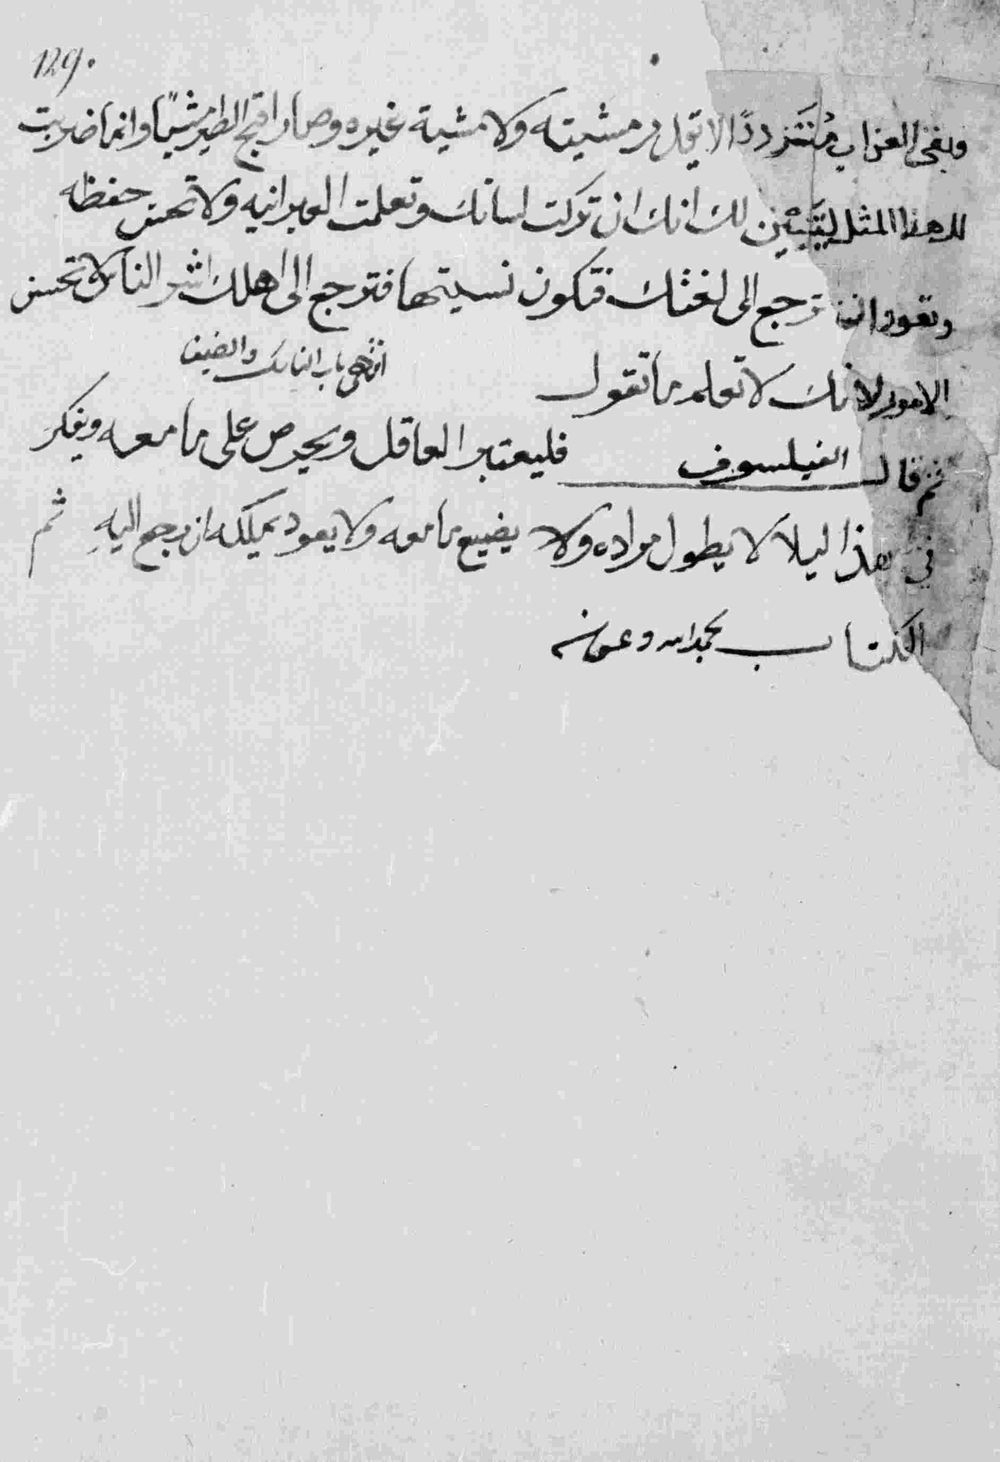 129.
وبقي الغراب متردداً لا يقدر مشيته ولا مشية غيره وصار اقبح الطير مشياً وانما ضربت
لك هذا المثل ليتبين لك انك ان تركت لسانك وتعلمت العبرانيه ولا تحسن حفظه
وتعود ان ترجع الى لغتك فتكون نسيتها فترجع الى اهلك اشر الناس لا تحسن
الامور لانك لا تعلم ما تقول
انتهى باب الناسك والضيف
ثم قال الفيلسوف فليعتبر العاقل ويحرص على ما معه ويفكر
في هذا ليلا لا يطول مراده ولا يضيع ما معه ولا يعود يمكنه ان يرجع اليه ثم
الكتاب بحمد الله وعونه